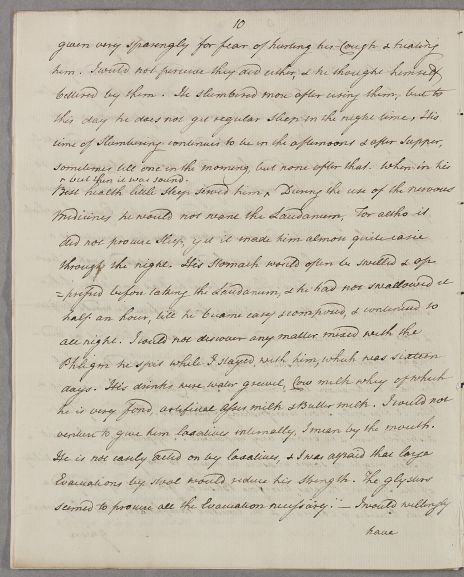 10
given very sparingly for fear of hurting his Cough & heating
him. I could not perceive they did either, & he thought himself
bettered by them. He slumbered more after using them, but to
this day he does not get regular Sleep in the night time, His
time of Slumbering continues to be in the afternoons & after Supper,
sometimes till one in the morning but none after that. When in his
^ but then it was sound.
Best health little Sleep served him ^. During the use of the nervous
Medicines he would not want the Laudanum, For altho it
did not procure Sleep, yet it made him almost quite easie
through the night. His Stomach would often be swelled & op
=pressed before taking the Laudanum, & he had not swallowed it
half an hour, till he became easy & composed, & continued so
all night. I could not discover any matter mixed with the
Phlegm he spit while I stayed with him, which was sixteen
days. His drinks were water gruel, Cow milk whey of which
he is very fond, artificial Asses milk & Butter milk. I would not
venture to give him laxatives internally, I mean by the mouth.
He is not easily acted on by laxatives, & I was afraid that large
Evacuations by stool would reduce his strength. The glysters
seemed to procure all the Evacuation necessary. — I would willingly
have